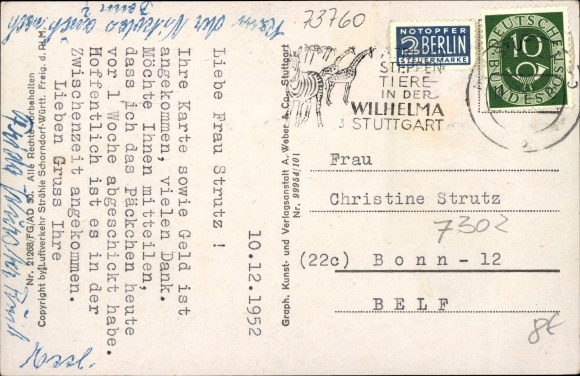 Kam der Nikolaus auch nach
Bonn?
73760
NOTOPFER
2 BERLIN
STEUERMARKE
DEUTSCHE
10
BUNDESPOST
STEPPEN-
TIERE
IN DER
WILHELMA
STUTTGART
3
10.12.1952
Liebe Frau Strutz !
Ihre Karte sowie Geld ist
angekommen, vielen Dank.
Möchte Ihnen mitteilen,
dass ich das Päckchen heute
vor 1 Woche abgeschickt habe.
Hoffentlich ist es in der
Zwischenzeit angekommen.
Lieben Gruss Ihre
Nr. 21268/FG/AD 30. Alle Rechte vorbehalten
Copyright by Luftverkehr Strähle Schorndorf-Württ. Freig. d. RLM.
Graph. Kunst- und Verlagsanstalt A. Weber & Co., Stuttgart
Nr. 98954/101
Frau
Christine Strutz
7302
(22c) Bonn-12
BELF
8€